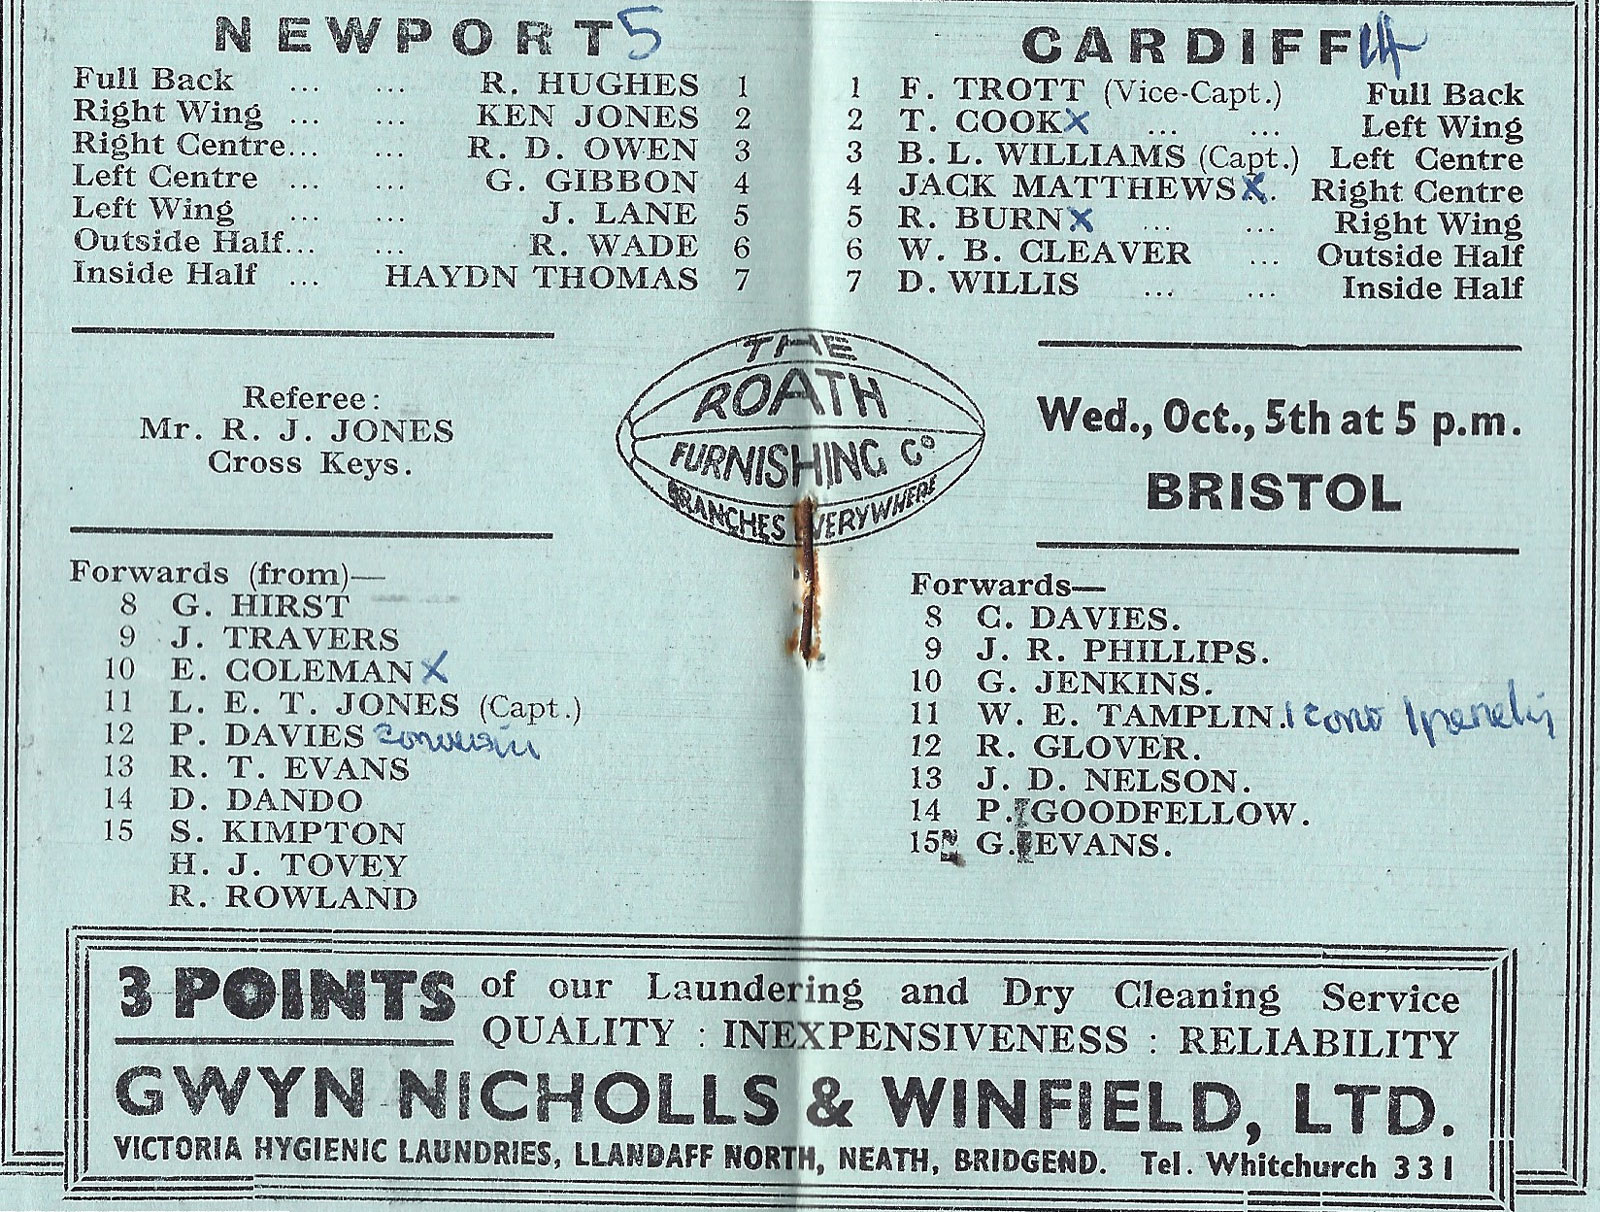 NEWPORT 5
Full Back ... ... R. HUGHES 1
Right Wing ... ... KEN JONES 2
Right Centre... ... R. D. OWEN 3
Left Centre ... ... G. GIBBON 4
Left Wing ... ... J. LANE 5
Outside Half... ... R. WADE 6
Inside Half ... HAYDN THOMAS 7
Referee:
Mr. R. J. JONES
Cross Keys.
Forwards (from)—
8 G. HIRST
9 J. TRAVERS
10 E. COLEMAN X
11 L. E. T. JONES (Capt.)
12 P. DAVIES conversion
13 R. T. EVANS
14 D. DANDO
15 S. KIMPTON
H. J. TOVEY
R. ROWLAND
THE
ROATH
FURNISHING Co
BRANCHES EVERYWHERE
CARDIFF 14
1 F. TROTT (Vice-Capt.) Full Back
2 T. COOK X ... ... Left Wing
3 B. L. WILLIAMS (Capt.) Left Centre
4 JACK MATTHEWS X. Right Centre
5 R. BURN X ... ... Right Wing
6 W. B. CLEAVER ... Outside Half
7 D. WILLIS ... ... Inside Half
Wed., Oct., 5th at 5 p.m.
BRISTOL
Forwards—
8 C. DAVIES.
9 J. R. PHILLIPS.
10 G. JENKINS.
11 W. E. TAMPLIN. 1 conv 1 penalty
12 R. GLOVER.
13 J. D. NELSON.
14 P. GOODFELLOW.
15 G. EVANS.
3 POINTS of our Laundering and Dry Cleaning Service
QUALITY : INEXPENSIVENESS : RELIABILITY
GWYN NICHOLLS & WINFIELD, LTD.
VICTORIA HYGIENIC LAUNDRIES, LLANDAFF NORTH, NEATH, BRIDGEND. Tel. Whitchurch 331